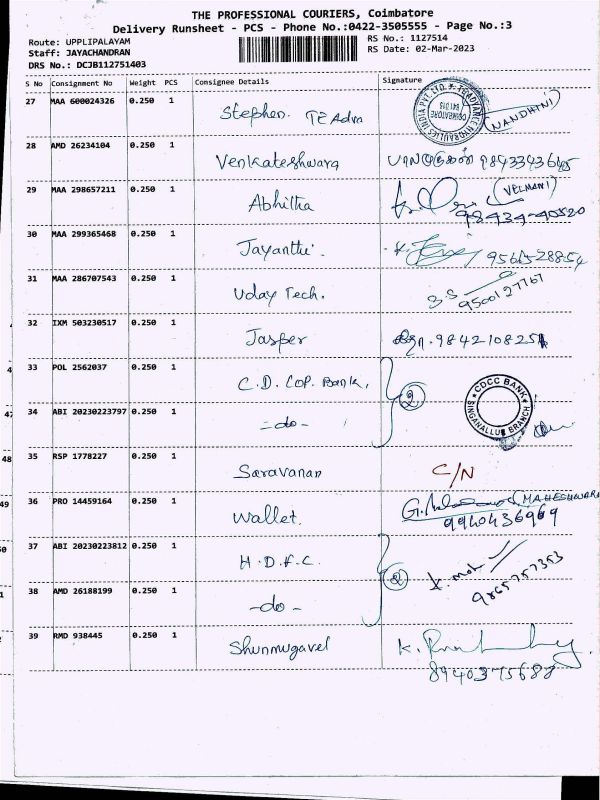 THE PROFESSIONAL COURIERS, Coimbatore
Delivery Runsheet - PCS - Phone No.:0422-3505555 - Page No.:3
Route: UPPLIPALAYAM
RS No.: 1127514
Staff: JAYACHANDRAN
RS Date: 02-Mar-2023
DRS No.: DCJB112751403
S No Consignment No Weight PCS Consignee Details Signature
27 MAA 600024326 0.250 1 Stephen. TE Adva (NANDHINI)
28 AMD 26234104 0.250 1 Venkateshwara 9843343645
29 MAA 298657211 0.250 1 Abhitha (VELMANI)
98434-40520
30 MAA 299365468 0.250 1 Jayanthi. 95665-28854
31 MAA 286707543 0.250 1 Uday Tech. 9500127767
32 IXM 503230517 0.250 1 Jasper 9842108251
33 POL 2562037 0.250 1 C.D. COP. Bank, 2 CDCC BANK SINGANALLUR BRANCH
34 ABI 20230223797 0.250 1 -do-
35 RSP 1778227 0.250 1 Saravanan C/N
36 PRO 14459164 0.250 1 Wallet. 9940436969
37 ABI 20230223812 0.250 1 H.D.F.C. 2
9865757353
38 AMD 26188199 0.250 1 -do-
39 RMD 938445 0.250 1 Shunmugavel
8940375688